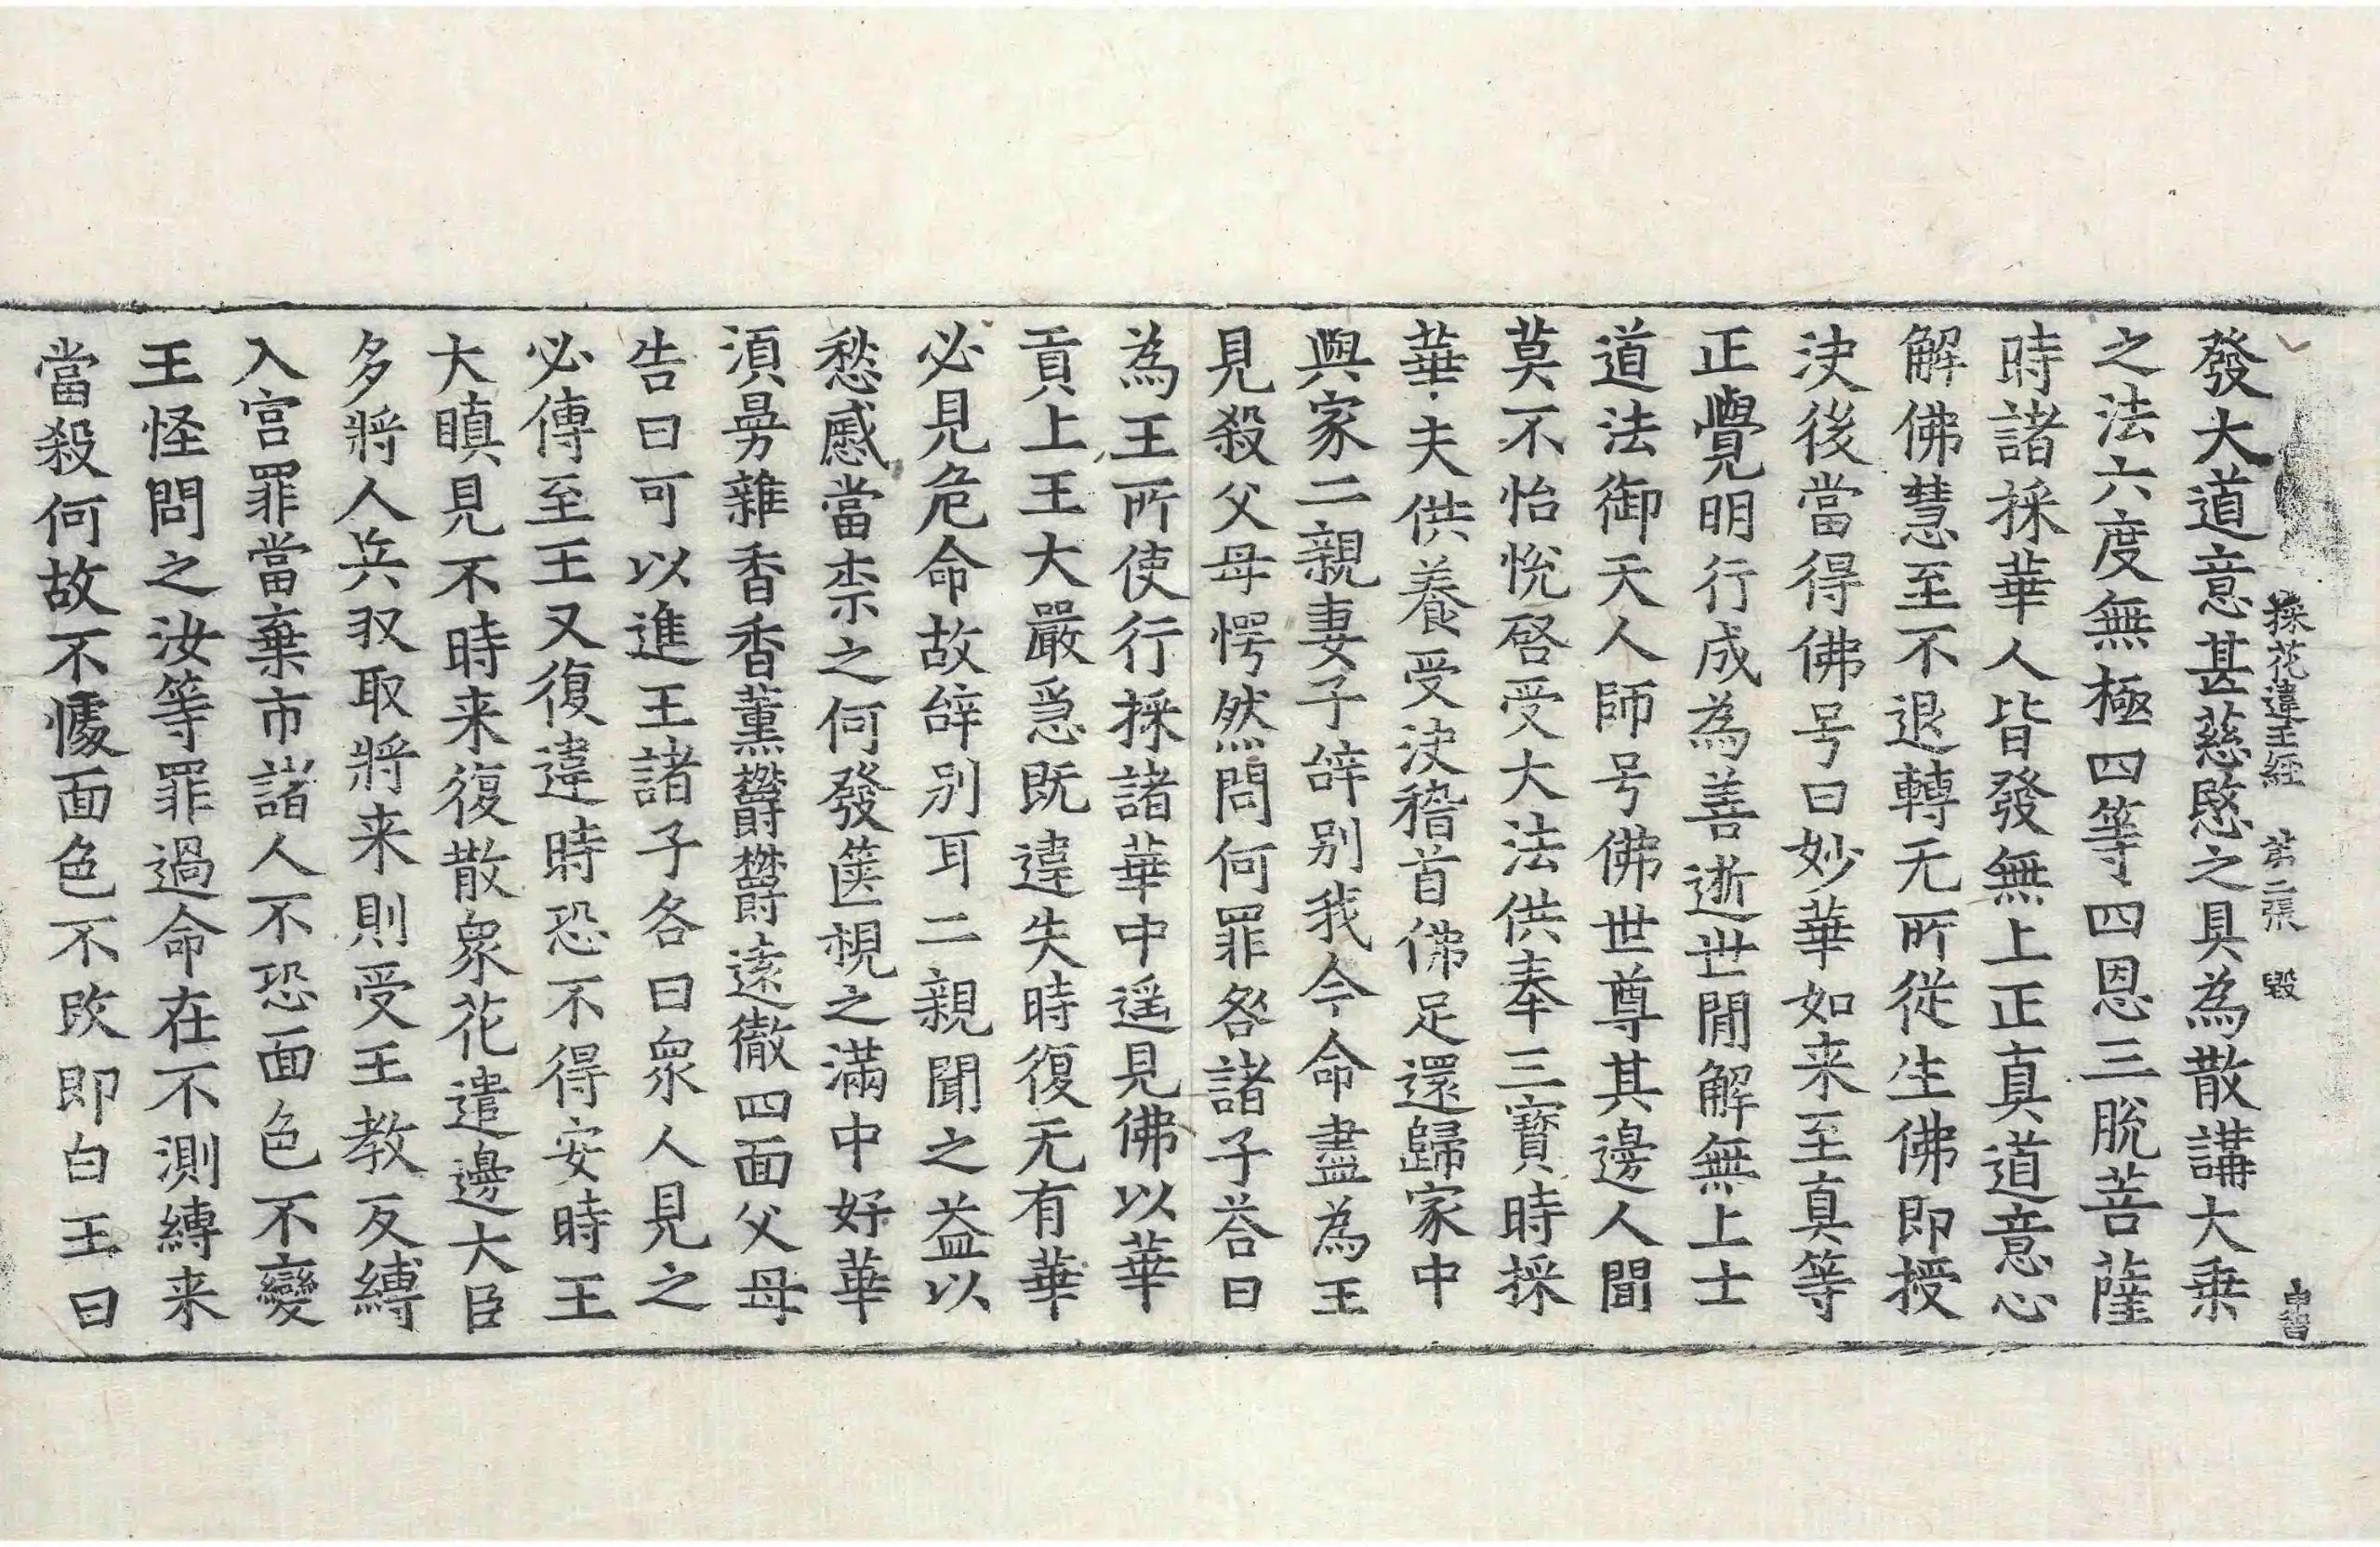 採花違王經 第二張 毀
發大道意甚慈愍之具為散講大乗
之法六度無極四等四恩三脫菩薩
時諸採華人皆發無上正真道意心
解佛慧至不退轉无所從生佛即授
決後當得佛号曰妙華如来至真等
正覺明行成為善逝世閒解無上士
道法御天人師号佛世尊其邊人聞
莫不怡悅啓受大法供奉三寶時採
華夫供養受決稽首佛足還歸家中
與家二親妻子辝別我今命盡為王
見殺父母愕然問何罪咎諸子荅曰
為王所使行採諸華中遥見佛以華
貢上王大嚴急既違失時復无有華
必見危命故辝別耳二親聞之益以
愁慼當柰之何發篋視之滿中好華
湏曼雜香香薰欝欝遠徹四面父母
告曰可以進王諸子各曰衆人見之
必傳至王又復違時恐不得安時王
大瞋見不時来復散衆花遣邊大臣
多將人兵収取將来則受王教反縛
入宮罪當棄市諸人不恐面色不變
王怪問之汝等罪過命在不測縛来
當殺何故不懅面色不改即白王曰